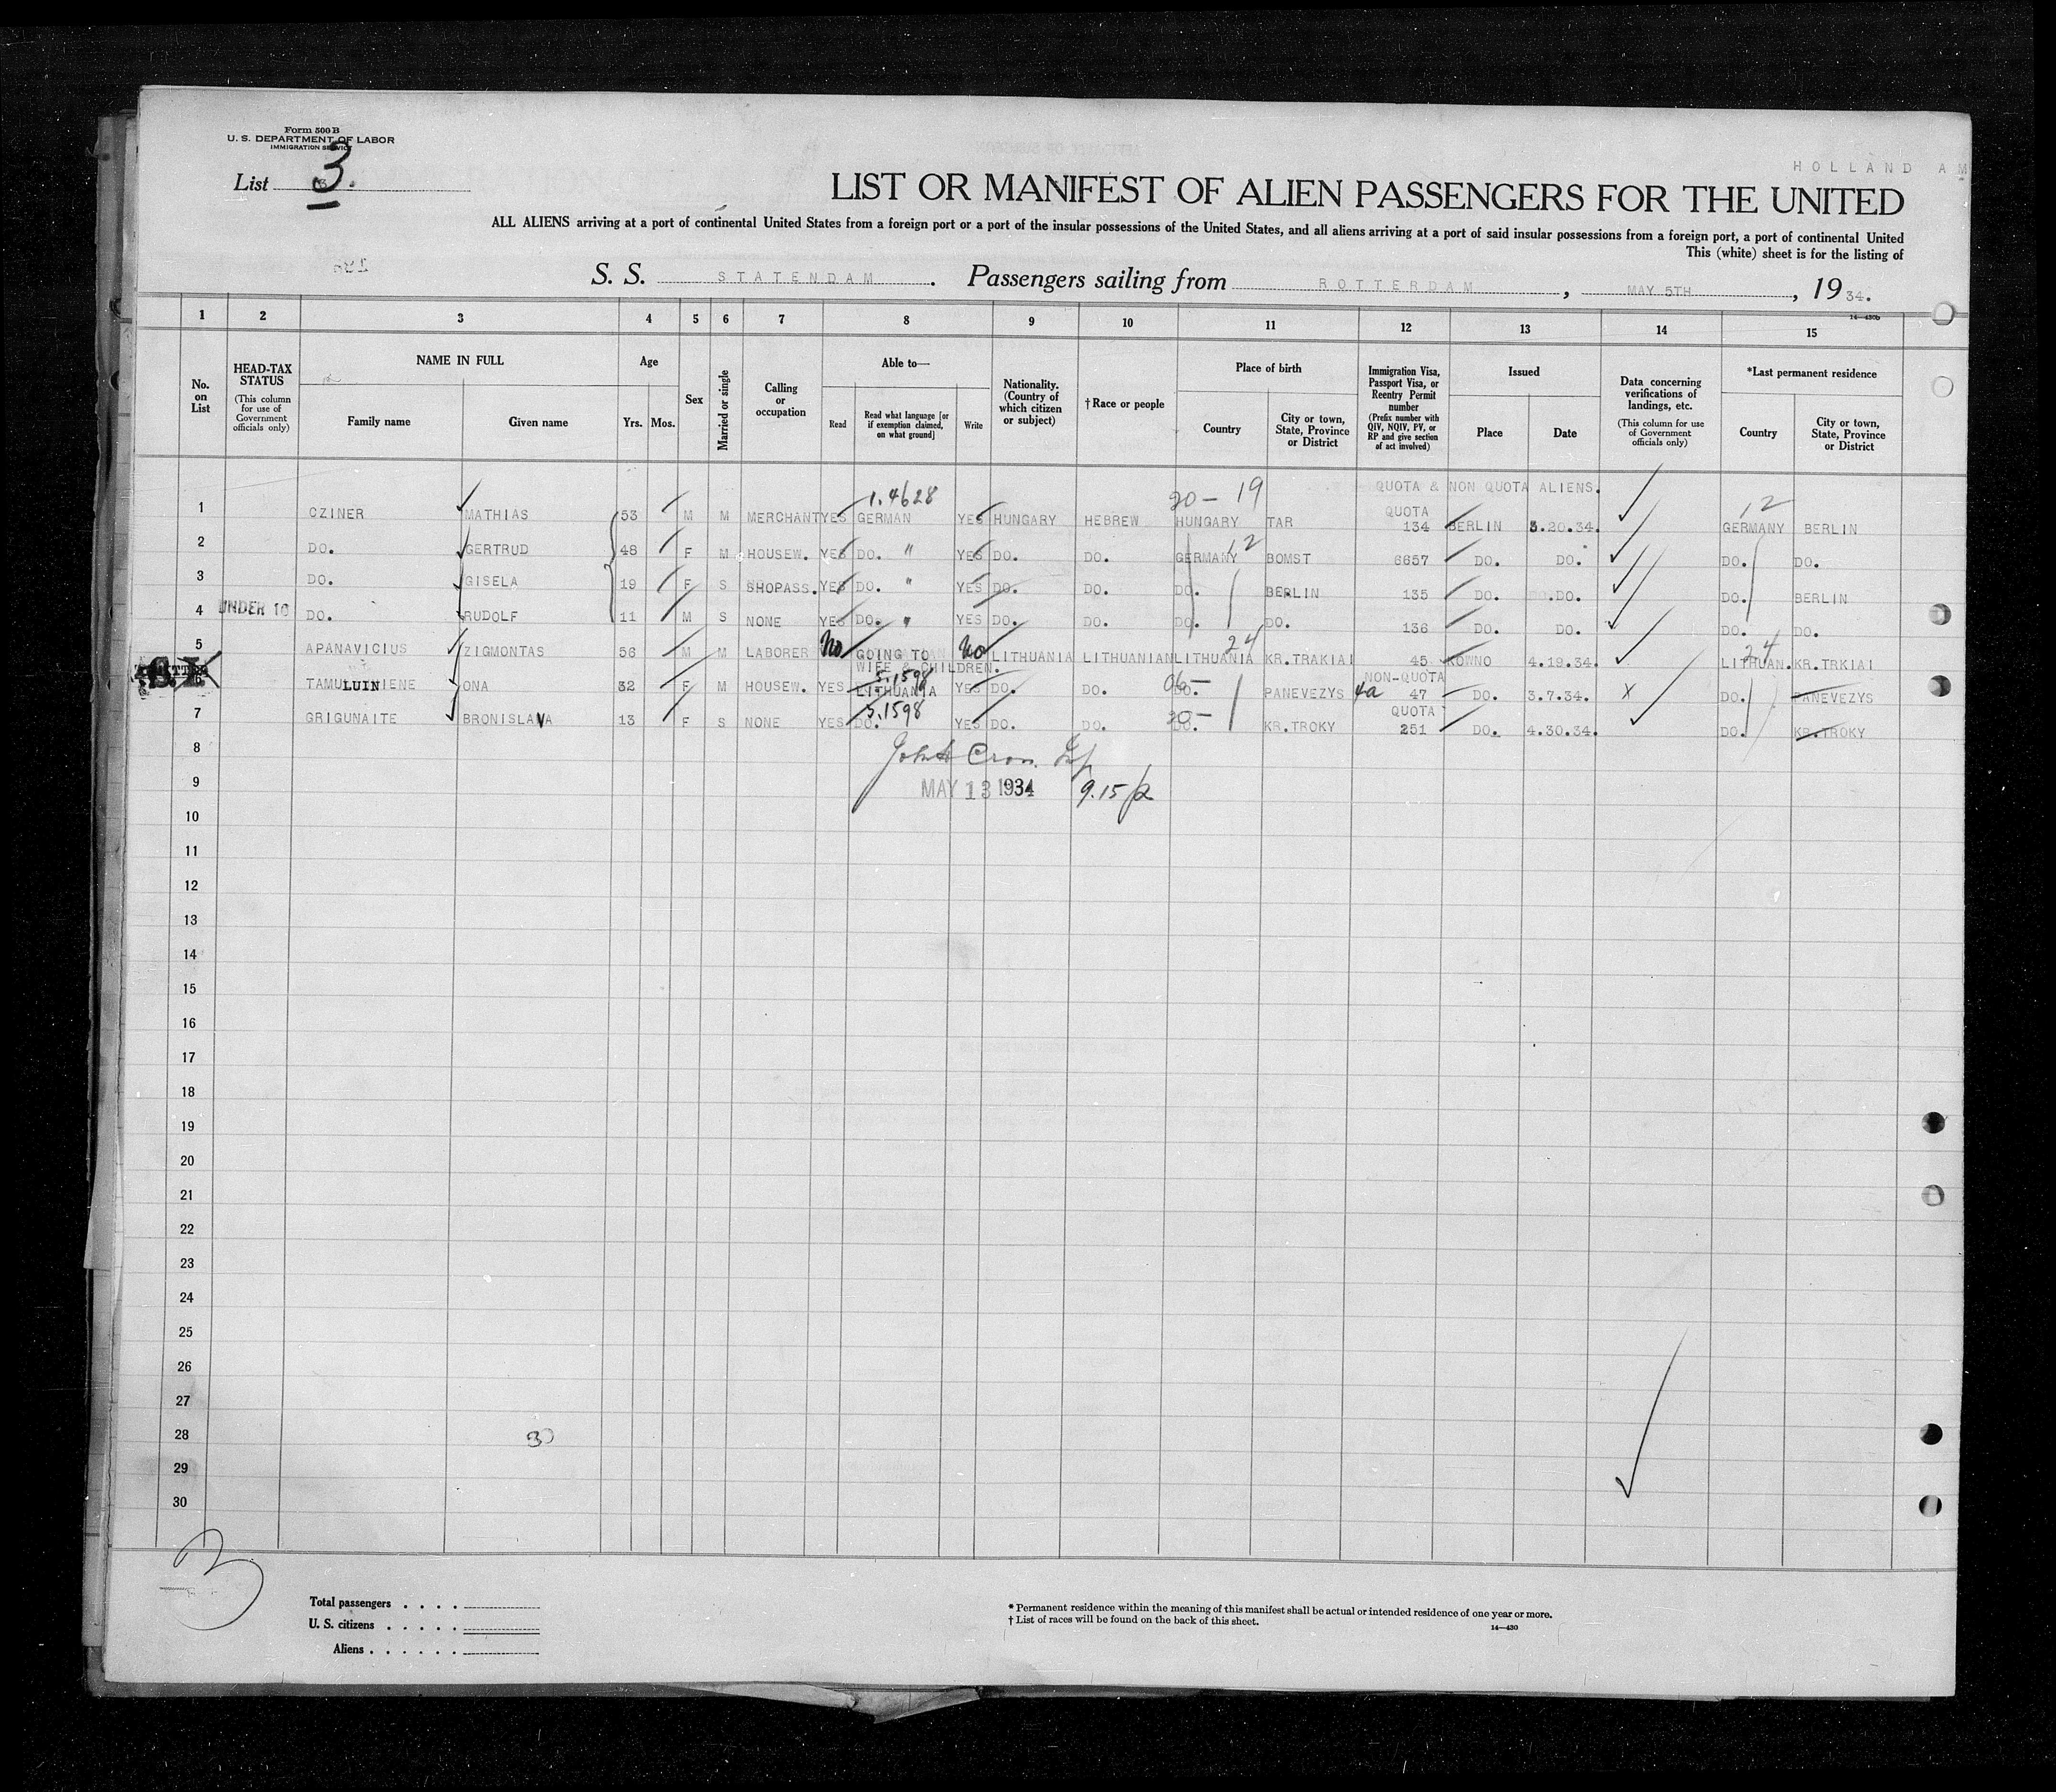 Form 500 B
U. S. DEPARTMENT OF LABOR
IMMIGRATION SERVICE
List 3.
HOLLAND AM
LIST OR MANIFEST OF ALIEN PASSENGERS FOR THE UNITED
ALL ALIENS arriving at a port of continental United States from a foreign port or a port of the insular possessions of the United States, and all aliens arriving at a port of said insular possessions from a foreign port, a port of continental United
This (white) sheet is for the listing of
S. S. STATENDAM. Passengers sailing from ROTTERDAM, MAY 5TH, 1934.
14—430b
1 2 3 4 5 6 7 8 9 10 11 12 13 14 15
No. on List
HEAD-TAX STATUS (This column for use of Government officials only)
NAME IN FULL
Family name Given name
Age
Yrs. Mos.
Sex
Married or single
Calling or occupation
Able to—
Read Read what language [or if exemption claimed, on what ground] Write
Nationality. (Country of which citizen or subject)
† Race or people
Place of birth
Country City or town, State, Province or District
Immigration Visa, Passport Visa, or Reentry Permit number (Prefix number with QIV, NQIV, PV, or RP and give section of act involved)
Issued
Place Date
Data concerning verifications of landings, etc. (This column for use of Government officials only)
*Last permanent residence
Country City or town, State, Province or District
1.4628 20— 19 QUOTA & NON QUOTA ALIENS. 12
QUOTA
1 CZINER MATHIAS 53 M M MERCHANT YES GERMAN YES HUNGARY HEBREW HUNGARY TAR 134 BERLIN 3.20.34. GERMANY BERLIN
2 DO. GERTRUD 48 F M HOUSEW. YES DO. " YES DO. DO. GERMANY 12 BOMST 6657 DO. DO. DO. DO.
3 DO. GISELA 19 F S SHOPASS. YES DO. " YES DO. DO. DO. BERLIN 135 DO. DO. DO. BERLIN
4 UNDER 16 DO. RUDOLF 11 M S NONE YES DO. " YES DO. DO. DO. DO. 136 DO. DO. DO. DO.
24 24
5 APANAVICIUS ZIGMONTAS 56 M M LABORER No GOING TO No LITHUANIA LITHUANIAN LITHUANIA KR.TRAKIAI 45 KOWNO 4.19.34. LITHUAN. KR.TRKIAI
WIFE & CHILDREN.
S.I. 5.1598 06— NON-QUOTA
6 TAMULUINIENE ONA 32 F M HOUSEW. YES LITHUANIA YES DO. DO. DO. PANEVEZYS 4a 47 DO. 3.7.34. X DO. PANEVEZYS
5.1598 20— QUOTA
7 GRIGUNAITE BRONISLAVA 13 F S NONE YES DO. YES DO. DO. DO. KR.TROKY 251 DO. 4.30.34. DO. KR.TROKY
8
9 MAY 13 1934 9.15
10
11
12
13
14
15
16
17
18
19
20
21
22
23
24
25
26
27
28 30
29
30
3
Total passengers . . . .
U. S. citizens . . . . .
Aliens . . . . . .
* Permanent residence within the meaning of this manifest shall be actual or intended residence of one year or more.
† List of races will be found on the back of this sheet.
14—430